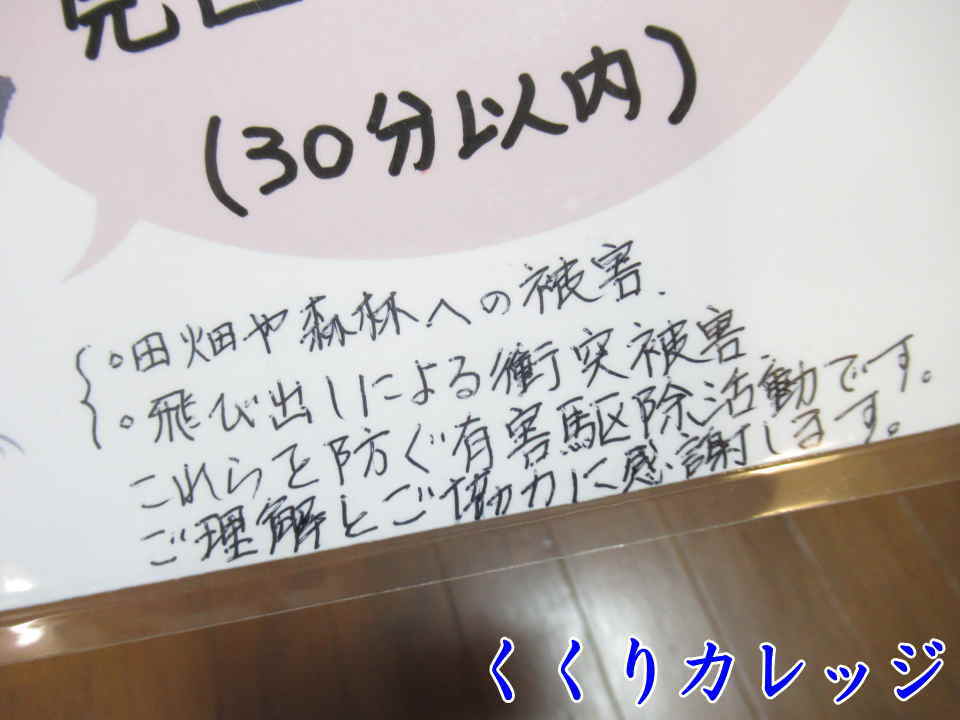 (30分以内)
。田畑や森林への被害.
。飛び出しによる衝突被害
これらを防ぐ有害駆除活動です。
ご理解とご協力に感謝します。
くくりカレッジ